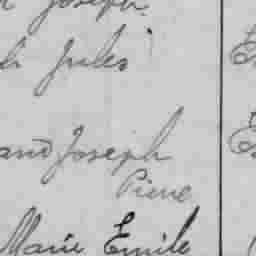 Joseph
h Jules
and Joseph
Pierre
Marie Emile